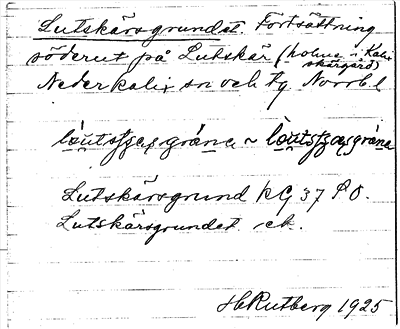 Lutskärsgrundet. Fortsättning
söderut på Lutskär (holme i Kalix
skärgård)
Nederkalix sn och tg Norrb. l.
Lutskärsgrund KG 37 PO.
Lutskärsgrundet ek.
HRutberg 1925